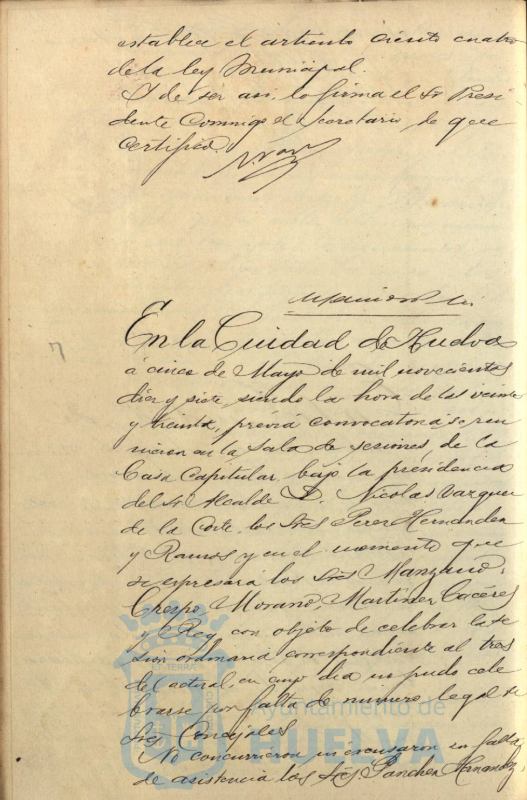 establece el artículo ciento cuatro
de la ley Municipal.
Y de ser así, lo firma el Sr Presi
dente conmigo el Secretario, de que
certifico.
En la Ciudad de Huelva
á cinco de Mayo de mil novecientos
diez y siete, siendo la hora de las veinte
y treinta, previa convocatoria se reu
nieron en la Sala de sesiones, de la
Casa Capitular, bajo la presidencia
del Sr Alcalde D. Nicolas Vazquez
de la Corte, los Sres Perez Hernandez
y Ramos y en el momento que
se expresará los Sres Manzano,
Crespo, Morano, Martinez Cacéres
y Rey, con objeto de celebrar la se
sion ordinaria correspondiente al tres
del actual, en cuyo dia no pudo cele
brarse por falta de numero legal de
Sres Concejales
No concurrieron ni excusaron su falta
de asistencia los Sres. Sanchez Hernandez,
Ayuntamiento de
HUELVA